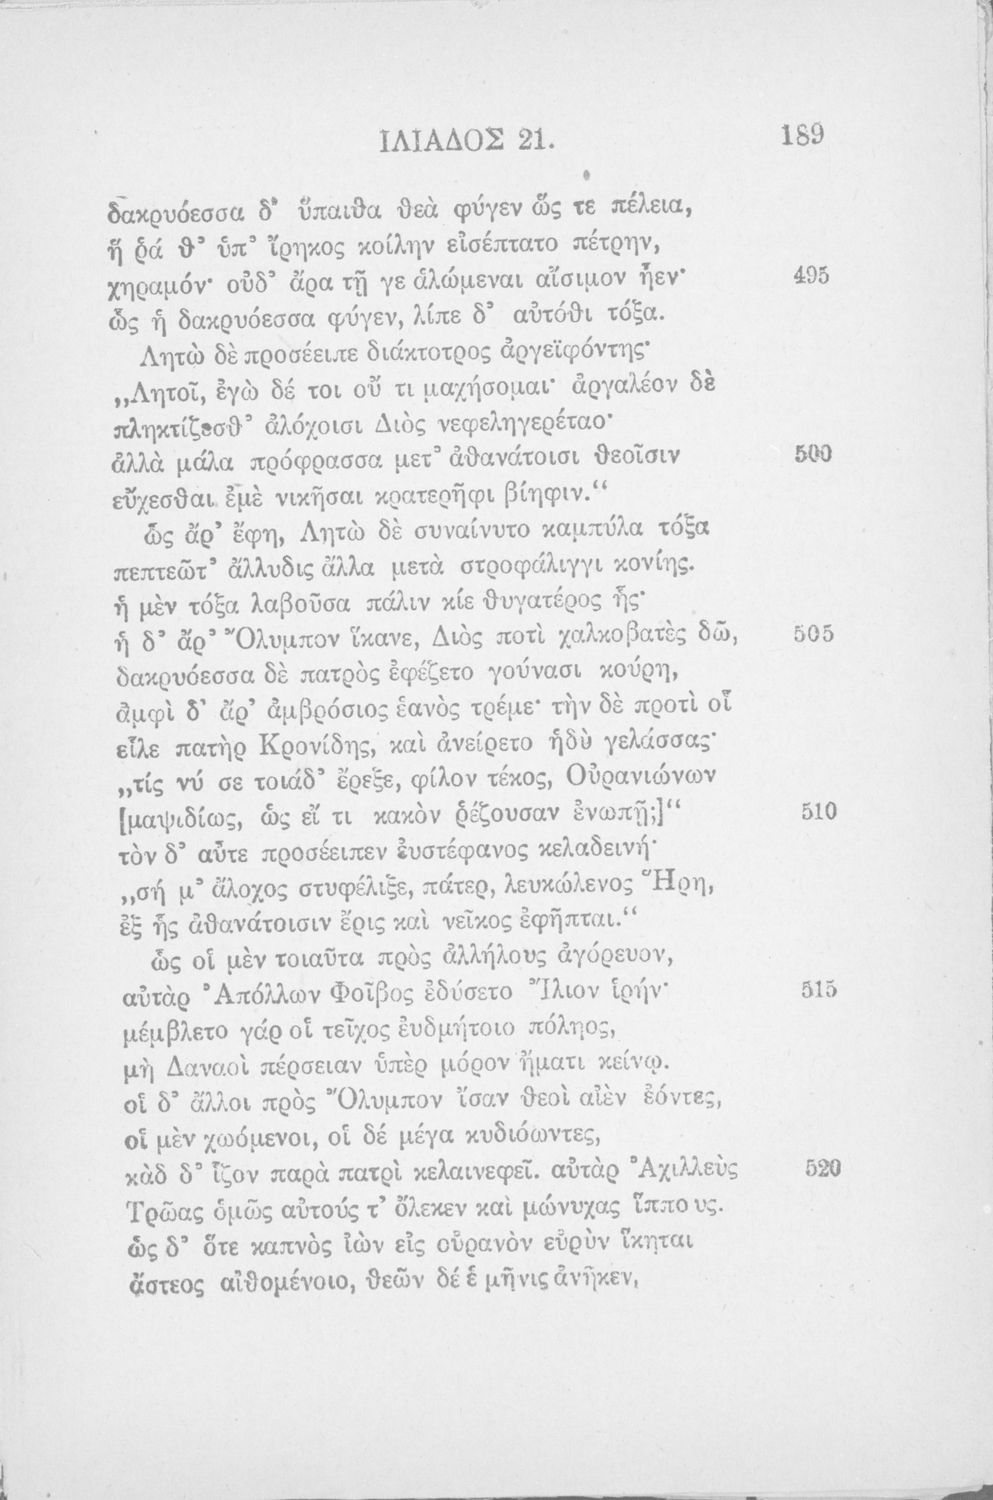 ΙΛΙΑΔΟΣ 21. 189
δακρυόεσσα δ᾽ ὕπαιθα θεὰ φύγεν ὥς τε πέλεια,
ἥ ῥά θ᾽ ὑπ᾽ ἴρηκος κοίλην εἰσέπτατο πέτρην,
χηραμόν· οὐδ᾽ ἄρα τῇ γε ἁλώμεναι αἴσιμον ἦεν· 495
ὣς ἡ δακρυόεσσα φύγεν, λίπε δ᾽ αὐτόθι τόξα.
Λητὼ δὲ προσέειπε διάκτοτρος ἀργεϊφόντης·
„Λητοῖ, ἐγὼ δέ τοι οὔ τι μαχήσομαι· ἀργαλέον δὲ
πληκτίζεσθ᾽ ἀλόχοισι Διὸς νεφεληγερέταο·
ἀλλὰ μάλα πρόφρασσα μετ᾽ ἀθανάτοισι θεοῖσιν 500
εὔχεσθαι ἐμὲ νικῆσαι κρατερῆφι βίηφιν.“
ὣς ἄρ᾽ ἔφη, Λητὼ δὲ συναίνυτο καμπύλα τόξα
πεπτεῶτ᾽ ἄλλυδις ἄλλα μετὰ στροφάλιγγι κονίης.
ἡ μὲν τόξα λαβοῦσα πάλιν κίε θυγατέρος ἧς·
ἡ δ᾽ ἄρ᾽ Ὄλυμπον ἵκανε, Διὸς ποτὶ χαλκοβατὲς δῶ, 505
δακρυόεσσα δὲ πατρὸς ἐφέζετο γούνασι κούρη,
ἀμφὶ δ᾽ ἄρ᾽ ἀμβρόσιος ἑανὸς τρέμε· τὴν δὲ προτὶ οἷ
εἷλε πατὴρ Κρονίδης, καὶ ἀνείρετο ἡδὺ γελάσσας·
„τίς νύ σε τοιάδ᾽ ἔρεξε, φίλον τέκος, Οὐρανιώνων
[μαψιδίως, ὡς εἴ τι κακὸν ῥέζουσαν ἐνωπῇ;]“ 510
τὸν δ᾽ αὖτε προσέειπεν ἐυστέφανος κελαδεινή·
„σή μ᾽ ἄλοχος στυφέλιξε, πάτερ, λευκώλενος Ἥρη,
ἐξ ἧς ἀθανάτοισιν ἔρις καὶ νεῖκος ἐφῆπται.“
ὣς οἱ μὲν τοιαῦτα πρὸς ἀλλήλους ἀγόρευον,
αὐτὰρ Ἀπόλλων Φοῖβος ἐδύσετο Ἴλιον ἱρήν· 515
μέμβλετο γάρ οἱ τεῖχος ἐυδμήτοιο πόληος,
μὴ Δαναοὶ πέρσειαν ὑπὲρ μόρον ἤματι κείνῳ.
οἱ δ᾽ ἄλλοι πρὸς Ὄλυμπον ἴσαν θεοὶ αἰὲν ἐόντες,
οἱ μὲν χωόμενοι, οἱ δέ μέγα κυδιόωντες,
κὰδ δ᾽ ἷζον παρὰ πατρὶ κελαινεφεῖ. αὐτὰρ Ἀχιλλεὺς 520
Τρῶας ὁμῶς αὐτούς τ᾽ ὄλεκεν καὶ μώνυχας ἵππους.
ὡς δ᾽ ὅτε καπνὸς ἰὼν εἰς οὐρανὸν εὐρὺν ἵκηται
ἄστεος αἰθομένοιο, θεῶν δέ ἑ μῆνις ἀνῆκεν,